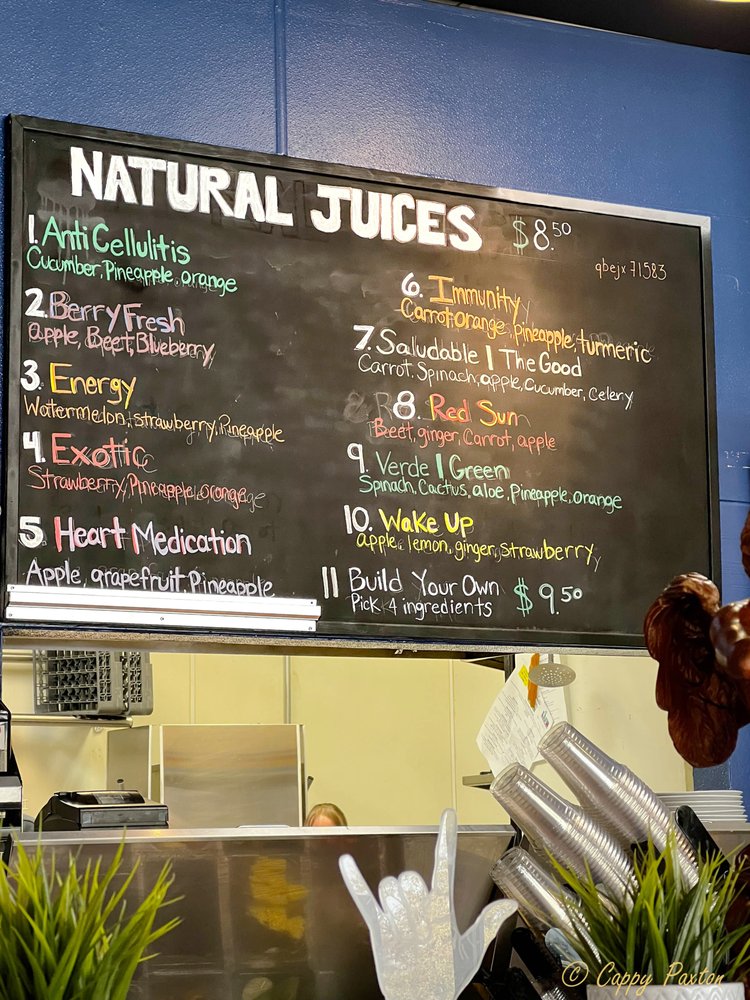 NATURAL JUICES $8.50
qbejx 71583
1. Anti Cellulitis
Cucumber, Pineapple, orange
2. Berry Fresh
apple, Beet, Blueberry
3. Energy
Watermelon, strawberry, Pineapple
4. Exotic
Strawberry, Pineapple, orange
5. Heart Medication
Apple, grapefruit, Pineapple
6. Immunity
Carrot, orange, pineapple, turmeric
7. Saludable | The Good
Carrot, Spinach, apple, Cucumber, Celery
8. Red Sun
Beet, ginger, Carrot, apple
9. Verde | Green
Spinach, Cactus, aloe, Pineapple, orange
10. Wake Up
apple, lemon, ginger, strawberry
11 Build Your Own $9.50
Pick 4 ingredients
© Cappy Paxton